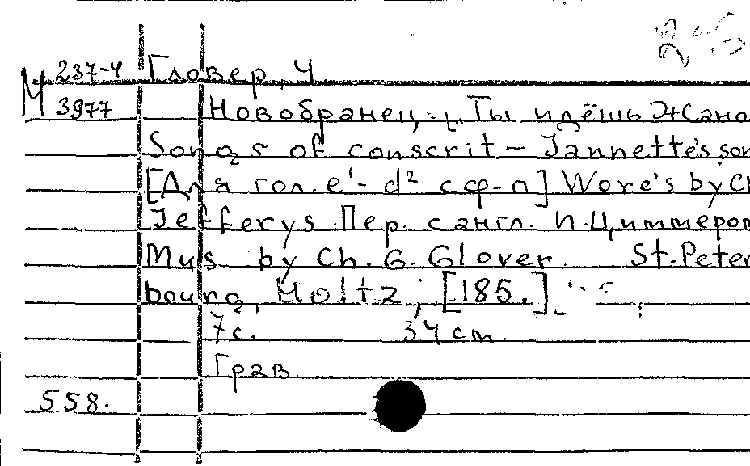 М 237-4 Гловер, Ч
3977 Новобранец. Ты идёшь Жано
Songs of conscrit – Jannette's son
[Для гол. e¹- d² с ф-п] Wore's by Ch
Jefferys Пер. с англ. П. Циммером
Mus by Ch. G. Glover. St. Peter
bourg, Holtz, [185.]
7 с. 34 cm
Грав
558.